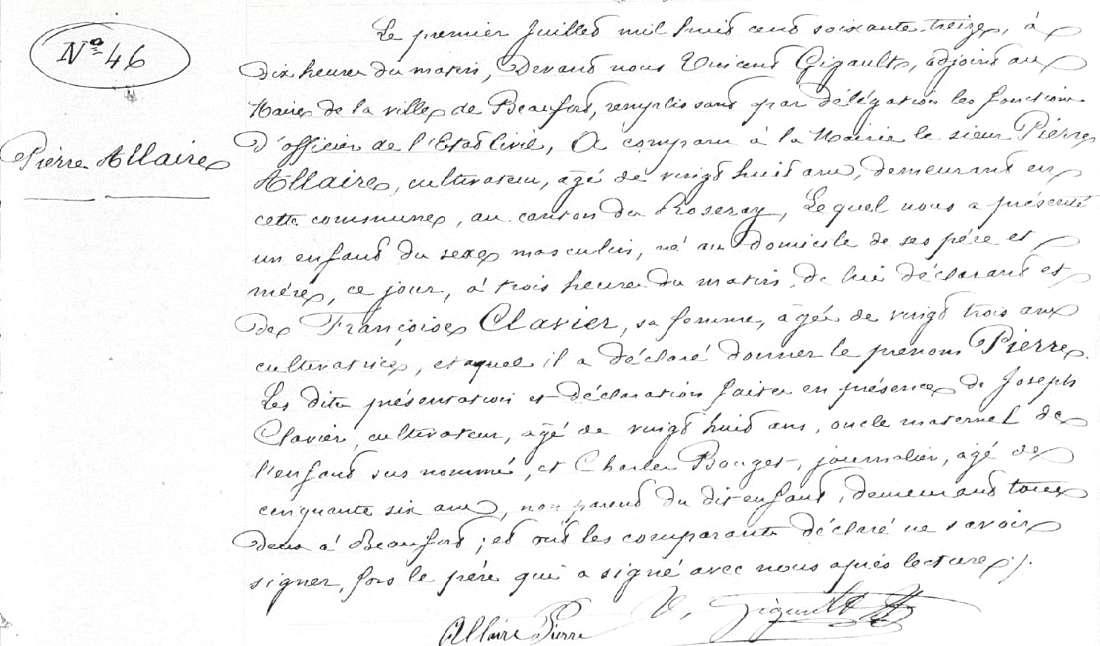 No 46
Pierre Allaire
Le premier Juillet mil huit cent soixante treize, à
dix heures du matin, Devant nous Vincent Gigault, adjoint au
Maire de la ville de Beaufort, remplissant par délégation les fonctions
d'officier de l'Etat Civil, A comparu à la Mairie le sieur Pierre
Allaire, cultivateur, âgé de vingt huit ans, demeurant en
cette commune, au canton du Roseray, Lequel nous a présenté
un enfant du sexe masculin, né au domicile de ses père et
mère, ce jour, à trois heures du matin, de lui déclarant et
de Françoise Clavier, sa femme, âgée de vingt trois ans
cultivatrice, et auquel il a déclaré donner le prénom Pierre.
Les dites présentation et déclaration faites en présence de Joseph
Clavier, cultivateur, âgé de vingt huit ans, oncle maternel de
l'enfant sus nommé, et Charles Bouget, journalier, âgé de
cinquante six ans, non parent du dit enfant, demeurant tous
deux à Beaufort; et ont les comparants déclaré ne savoir
signer, fors le père qui a signé avec nous après lecture ./.
Allaire Pierre V. Gigault